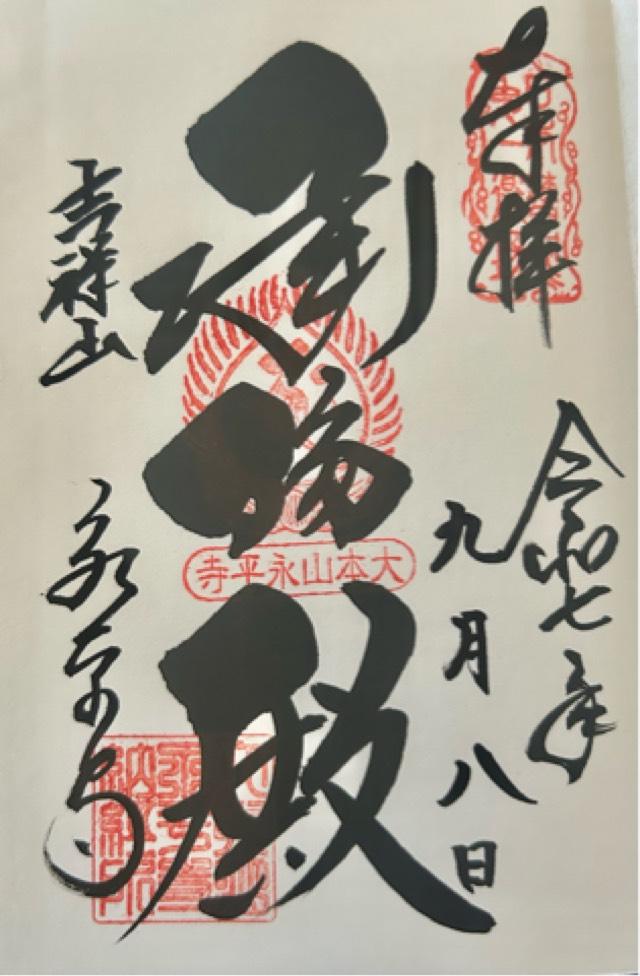 奉拝
令和七年
九月八日
承陽殿
大本山永平寺
吉祥山
永平寺